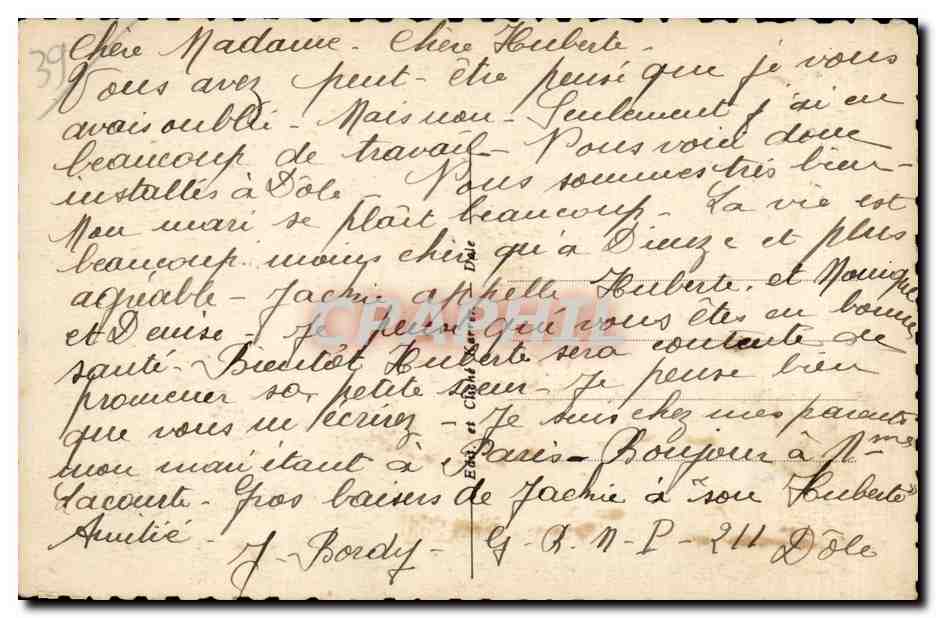 39
Chère Madame - Chère Huberte -
Vous avez peut-être pensé que je vous
avais oublié - Mais non - Seulement j'ai eu
beaucoup de travail - Nous voici donc
installés à Dôle - Nous sommes très bien -
Mon mari se plaît beaucoup - La vie est
beaucoup moins chère qu'à Dieuze et plus
agréable - Jackie appelle Huberte et Monique
et Denise - Je pense que vous êtes en bonne
santé - Bientôt Huberte sera contente de
promener sa petite sœur - Je pense bien
que vous m'écrirez - Je suis chez mes parents
mon mari étant à Paris - Bonjour à Mmes
Lacourte - Gros baisers de Jackie à "son Huberte"
Amitié - J - Bordy - G. R. N - P - 211 Dôle
Edit. et Cliché Karrer - Dole
CRAPHIL